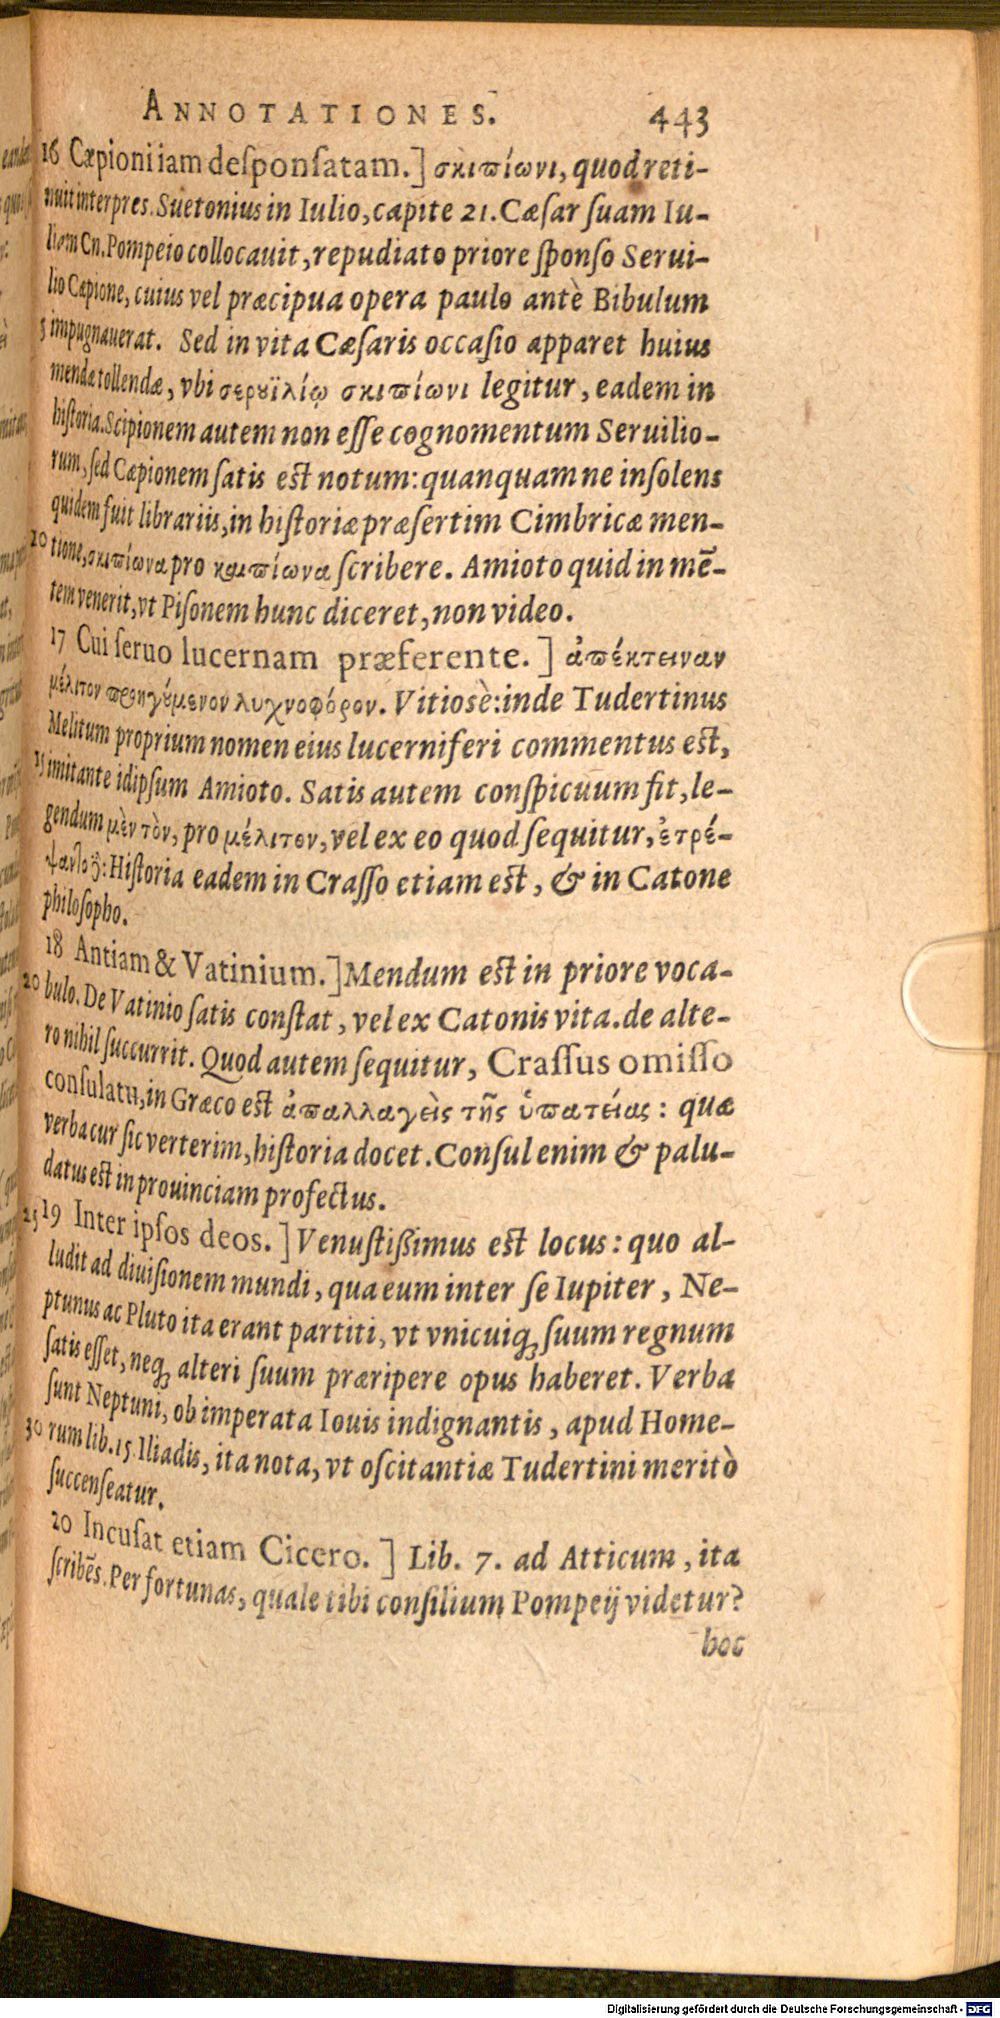 ANNOTATIONES. 443
16 Cæpioni iam desponsatam.] σκιπίωνι, quod reti-
nuit interpres. Suetonius in Iulio, capite 21. Cæsar suam Iu-
liam Cn. Pompeio collocavit, repudiato priore sponso Servi-
lio Cæpione, cuius vel præcipua opera paulo antè Bibulum
5 impugnauerat. Sed in vita Cæsaris occasio apparet huius
mendæ tollendæ, vbi σερουϊλίῳ σκιπίωνι legitur, eadem in
historia. Scipionem autem non esse cognomentum Seruilio-
rum, sed Cæpionem satis est notum: quanquam ne insolens
quidem fuit librariis, in historiæ præsertim Cimbricæ men-
10 tione, σκιπίωνα pro καιπίωνα scribere. Amioto quid in mē-
tem venerit, vt Pisonem hunc diceret, non video.
17 Cui seruo lucernam præferente.] ἀπέκτειναν
μέλιτον προηγούμενον λυχνοφόρον. Vitiosè: inde Tudertinus
Melitum proprium nomen eius lucerniferi commentus est,
15 imitante idipsum Amioto. Satis autem conspicuum fit, le-
gendum μὲν τὸν, pro μέλιτον, vel ex eo quod sequitur, ἐτρέ-
ψαντο δὲ: Historia eadem in Crasso etiam est, & in Catone
philosopho.
18 Antiam & Vatinium.] Mendum est in priore voca-
20 bulo. De Vatinio satis constat, vel ex Catonis vita. de alte-
ro nihil succurrit. Quod autem sequitur, Crassus omisso
consulatu, in Græco est ἀπαλλαγεὶς τῆς ὑπατείας: quæ
verba cur sic verterim, historia docet. Consul enim & palu-
datus est in prouinciam profectus.
25 19 Inter ipsos deos.] Venustißimus est locus: quo al-
ludit ad diuisionem mundi, qua eum inter se Iupiter, Ne-
ptunus ac Pluto ita erant partiti, vt vnicuiq; suum regnum
satis esset, neq; alteri suum præripere opus haberet. Verba
sunt Neptuni, ob imperata Iouis indignantis, apud Home-
30 rum lib. 15. Iliadis, ita nota, vt oscitantiæ Tudertini meritò
succenseatur.
20 Incusat etiam Cicero.] Lib. 7. ad Atticum, ita
scribēs. Per fortunas, quale tibi consilium Pompeij videtur?
hoc
Digitalisierung gefördert durch die Deutsche Forschungsgemeinschaft - DFG